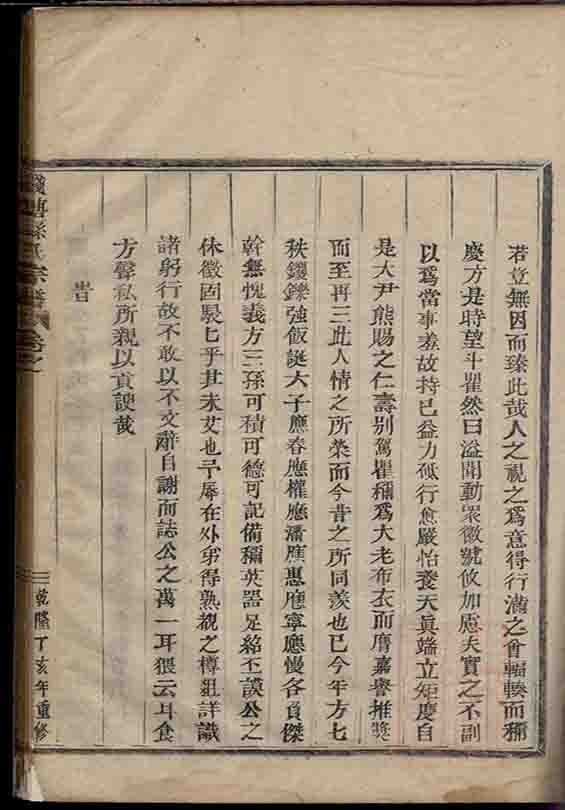 若豈無因而臻此哉人之視之爲意得行滿之會輻輳而稱
慶方是時望斗瞿然曰溢聞動衆徽號攸加慮夫實之不副
以爲當事羞故持已益力砥行愈嚴怡發天眞端立矩度自
是大尹熊賜之仁壽別駕瞿稱爲大老布衣而膺嘉譽推奬
而至再三此人情之所榮而今昔之所同羨也已今年方七
秩鑊鑠強飯誕六子應春應權應潘應惠應寧應慢各負傑
幹無愧義方三孫可積可德可記備稱英器足紹丕謨公之
休徵固褁乜乎其未艾也予辱在外弟得熟覩之樽俎詳識
諸躬行故不敢以不文辭自謝而誌公之萬一耳猥云斗食
方聲私所親以貢諛哉
旹
孫氏宗譜
卷之
乾隆丁亥年重修